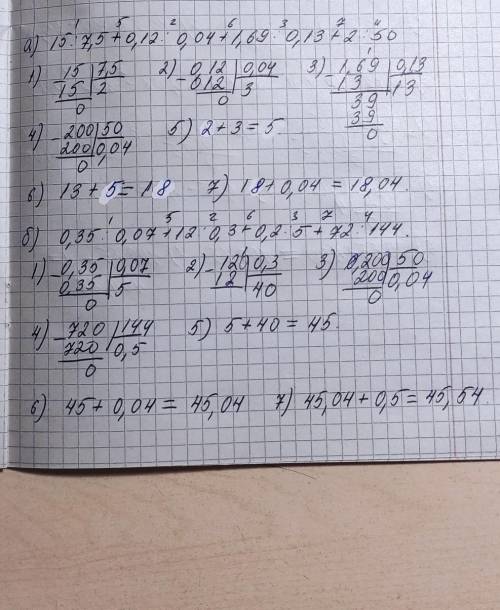 1 5 2 6 3 7 4
а) 15 : 7,5 + 0,12 : 0,04 + 1,69 : 0,13 + 2 : 50
1) 15 | 7,5 2) 0,12 | 0,04 3) 1,69 | 0,13
15 2 012 3 13 13
0 0 39
39
0
4) 200 | 50 5) 2 + 3 = 5
200 0,04
0
6) 13 + 5 = 18 7) 18 + 0,04 = 18,04.
1 5 2 6 3 7 4
б) 0,35 : 0,07 + 12 : 0,3 + 0,2 : 5 + 72 : 144.
1) 0,35 | 0,07 2) 120 | 0,3 3) 0,200 | 50
0,35 5 12 40 200 0,04
0 0
4) 720 | 144 5) 5 + 40 = 45.
720 0,5
0
6) 45 + 0,04 = 45,04 7) 45,04 + 0,5 = 45,54